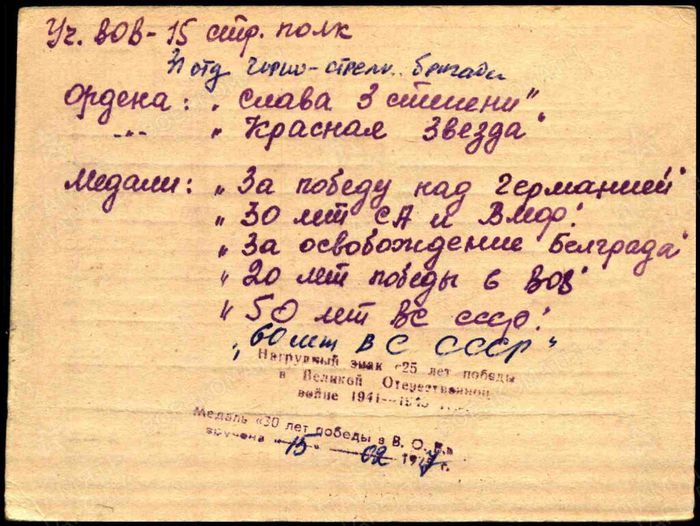 Уч. ВОВ - 15 стр. полк
31 отд горно-стрелк. бригады
Ордена: „Слава 3 степени"
-"- „Красная Звезда"
Медали: „За победу над Германией"
„30 лет СА и ВМФ"
„За освобождение Белграда"
„20 лет победы в ВОВ"
„50 лет ВС СССР"
„60 лет ВС СССР"
Нагрудный знак «25 лет победы
в Великой Отечественной
войне 1941—1945
Медаль «30 лет победы в В. О. В.»
вручена "15" 02 1977 г.